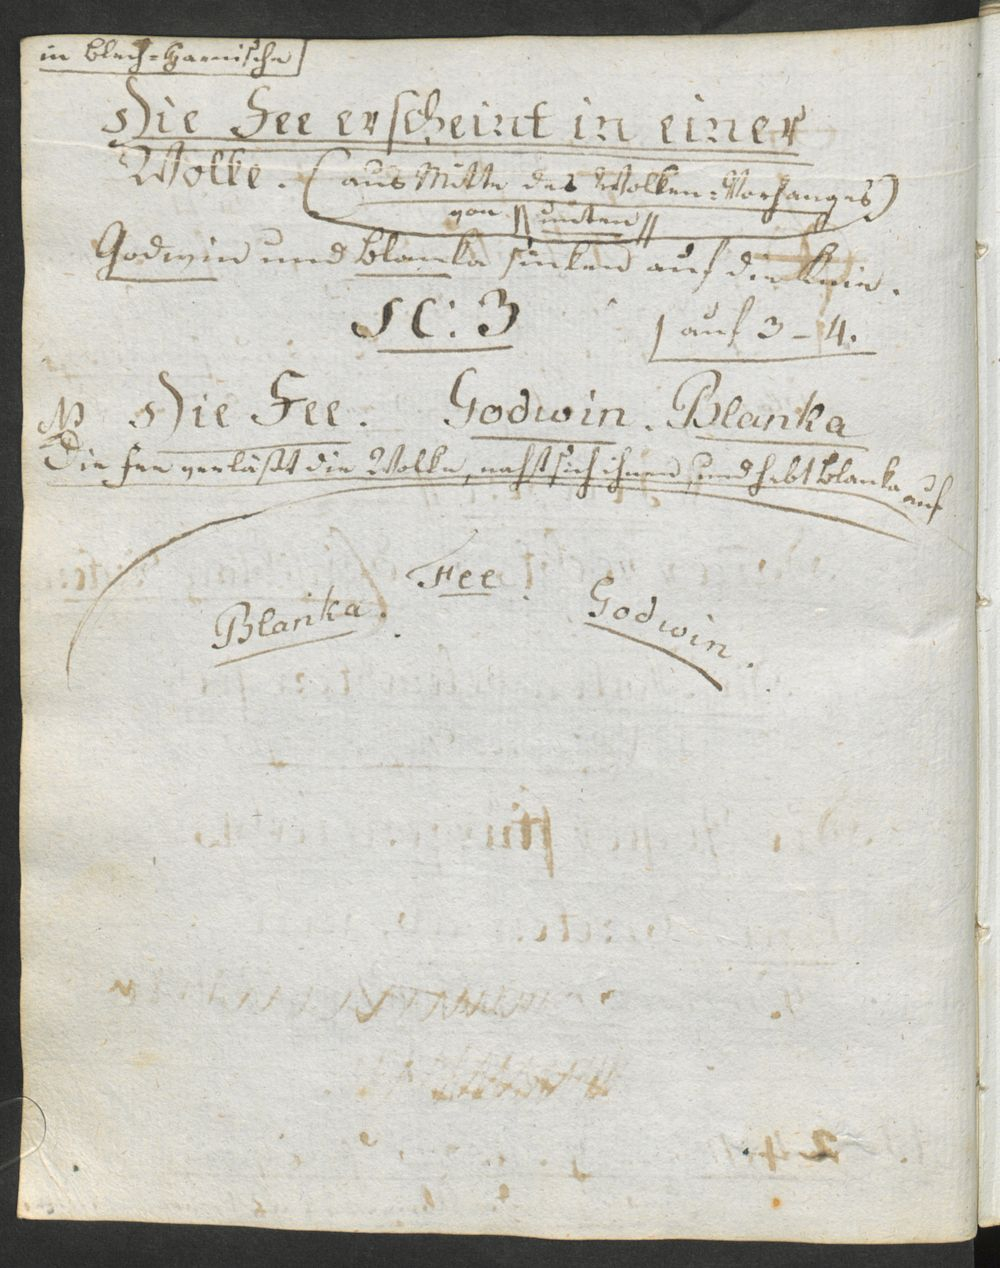 in Blech-Harnische
Die Fee erscheint in einer
Wolke. (aus Mitte des Wolken-Vorhanges)
von || unten ||
Godwin und Blanka sinken auf die Knie.
SC: 3
auf 3 – 4.
Die Fee. Godwin. Blanka
Die Fee verläßt die Wolke, nahst sich ihnen und hebt Blanka auf
Fee.
Blanka.
Godwin.